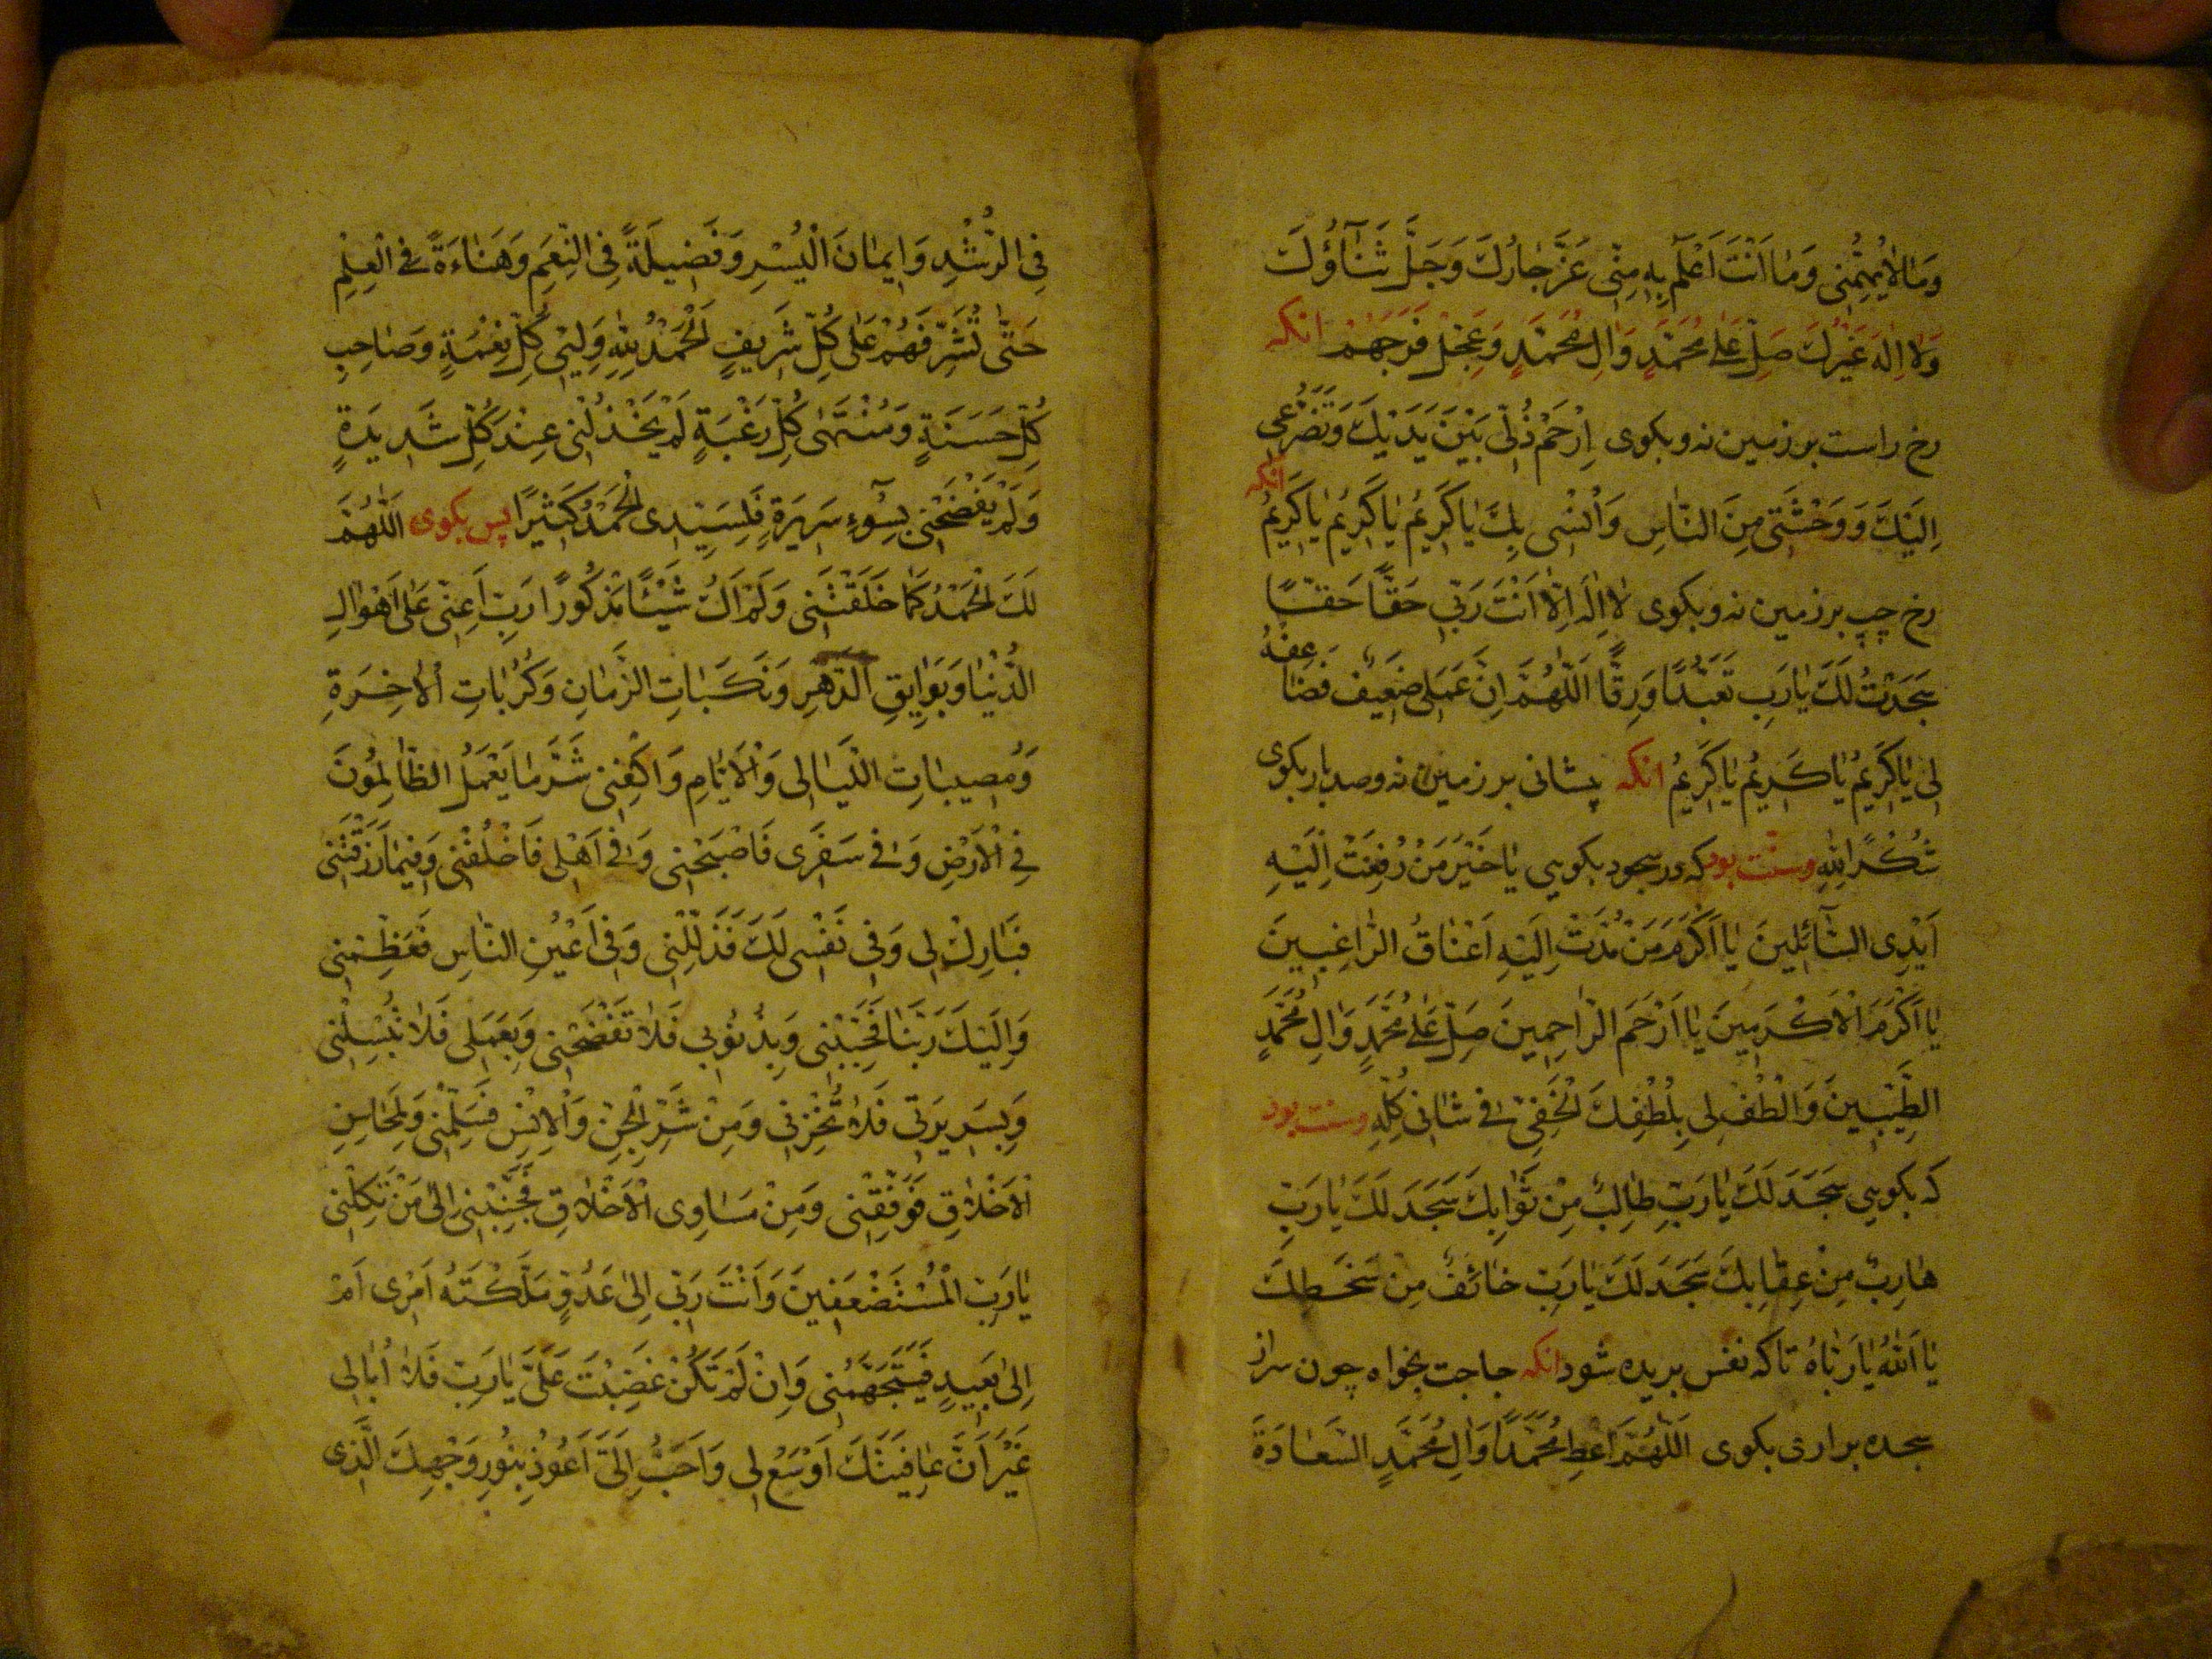 وَمٰا لٰا يُهِمُّنِى وَمٰا اَنْتَ اَعْلَمُ بِهِ مِنّى عَزَّ جٰارُكَ وَجَلَّ ثَنٰآؤُكَ
وَلٰا اِلٰهَ غَيْرُكَ صَلِّ عَلٰى مُحَمَّدٍ وَاٰلِ مُحَمَّدٍ وَعَجِّلْ فَرَجَهُمْ انکه
رخ راست بر زمین نه و بکوی اِرْحَمْ ذُلّى بَيْنَ يَدَيْكَ وَتَضَرُّعى
اِلَيْكَ وَوَحْشَتى مِنَ النّاسِ وَاُنْسى بِكَ يٰا كَريمُ يٰا كَريمُ يٰا كَريمُ انکه
رخ چپ بر زمین نه و بکوی لٰا اِلٰهَ اِلّٰا اَنْتَ رَبّى حَقًّا حَقًّا
سَجَدْتُ لَكَ يٰا رَبِّ تَعَبُّدًا وَرِقًّا اَللّٰهُمَّ اِنَّ عَمَلى ضَعيفٌ فَضٰاعِفْهُ
لى يٰا كَريمُ يٰا كَريمُ يٰا كَريمُ انکه پیشانی بر زمین نه و صد بار بکوی
شُكْرًا لِلّٰهِ وسنّت بود که در سجود بکویی يٰا خَيْرَ مَنْ رُفِعَتْ اِلَيْهِ
اَيْدِى السّٰآئِلينَ يٰا اَكْرَمَ مَنْ مُدَّتْ اِلَيْهِ اَعْنٰاقُ الرّٰاغِبينَ
يٰا اَكْرَمَ الْاَكْرَمينَ يٰا اَرْحَمَ الرّٰاحِمينَ صَلِّ عَلٰى مُحَمَّدٍ وَاٰلِ مُحَمَّدٍ
الطَّيِّبينَ وَالْطُفْ لى بِلُطْفِكَ الْخَفِىِّ فى شٰانى كُلِّهِ وسنت بود
که بکویی سَجَدَ لَكَ يٰا رَبِّ طٰالِبٌ مِنْ ثَوٰابِكَ سَجَدَ لَكَ يٰا رَبِّ
هٰارِبٌ مِنْ عِقٰابِكَ سَجَدَ لَكَ يٰا رَبِّ خٰائِفٌ مِنْ سَخَطِكَ
يٰا اَللّٰهُ يٰا رَبّٰاهُ تا که نفس بریده شود انکه حاجت بخواه چون سر از
سجده براری بکوی اَللّٰهُمَّ اَعْطِ مُحَمَّدًا وَاٰلِ مُحَمَّدٍ السَّعٰادَةَ
فِى الرُّشْدِ وَايمٰانَ الْيُسْرِ وَفَضيلَةً فِى النِّعَمِ وَهَنٰاءَةً فِى الْعِلْمِ
حَتّٰى تُشَرِّفَهُمْ عَلٰى كُلِّ شَريفٍ اَلْحَمْدُ لِلّٰهِ وَلِىِّ كُلِّ نِعْمَةٍ وَصٰاحِبِ
كُلِّ حَسَنَةٍ وَمُنْتَهٰى كُلِّ رَغْبَةٍ لَمْ يَخْذُلْنى عِنْدَ كُلِّ شَديدَةٍ
وَلَمْ يَفْضَحْنى بِسُوٓءِ سَريرَةٍ فَلِسَيِّدِى الْحَمْدُ كَثيرًا پس بکوی اَللّٰهُمَّ
لَكَ الْحَمْدُ كَمٰا خَلَقْتَنى وَلَمْ اَكُ شَيْئًا مَذْكُورًا رَبِّ اَعِنّى عَلٰى اَهْوٰالِ
الدُّنْيٰا وَبَوٰايِقِ الدَّهْرِ وَنَكَبٰاتِ الزَّمٰانِ وَكُرُبٰاتِ الْاٰخِرَةِ
وَمُصيبٰاتِ اللَّيٰالى وَالْاَيّٰامِ وَاكْفِنى شَرَّ مٰا يَعْمَلُ الظّٰالِمُونَ
فِى الْاَرْضِ وَفى سَفَرى فَاصْبَحْنى وَفى اَهْلى فَاخْلُفْنى وَفيمٰا رَزَقْتَنى
فَبٰارِكْ لى وَفى نَفْسى لَكَ فَذَلِّلْنى وَفى اَعْيُنِ النّٰاسِ فَعَظِّمْنى
وَاِلَيْكَ رَبَّنٰا فَحَبِّبْنى وَبِذُنُوبى فَلٰا تَفْضَحْنى وَبِعَمَلى فَلٰا تُبْسِلْنى
وَبِسَريرَتى فَلٰا تُخْزِنى وَمِنْ شَرِّ الْجِنِّ وَالْاِنْسِ فَسَلِّمْنى وَلِمَحٰاسِنِ
الْاَخْلٰاقِ فَوَفِّقْنى وَمِنْ مَسٰاوِى الْاَخْلٰاقِ فَجَنِّبْنى اِلٰى مَنْ تَكِلُنى
يٰا رَبَّ الْمُسْتَضْعَفينَ وَاَنْتَ رَبّى اِلٰى عَدُوٍّ مَلَّكْتَهُ اَمْرى اَمْ
اِلٰى بَعيدٍ فَيَتَجَهَّمُنى وَاِنْ لَمْ تَكُنْ غَضِبْتَ عَلَىَّ يٰا رَبِّ فَلٰا اُبٰالى
غَيْرَ اَنَّ عٰافِيَتَكَ اَوْسَعُ لى وَاَحَبُّ اِلَىَّ اَعُوذُ بِنُورِ وَجْهِكَ الَّذى